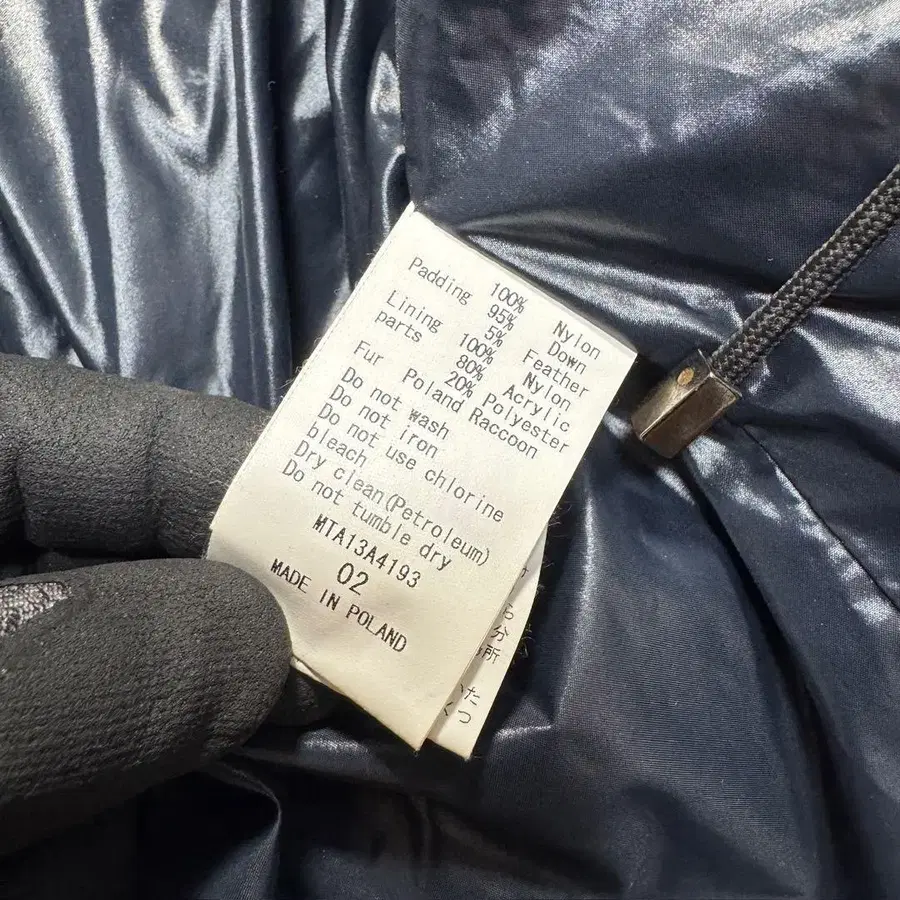 100% Nylon
Padding 95% Down
5% Feather
Lining 100% Nylon
parts 80% Acrylic
20% Polyester
Fur Poland Raccoon
Do not wash
Do not iron
Do not use chlorine
bleach
Dry clean(Petroleum)
Do not tumble dry
MTA13A4193
02
MADE IN POLAND
ら
分
所
た
つ